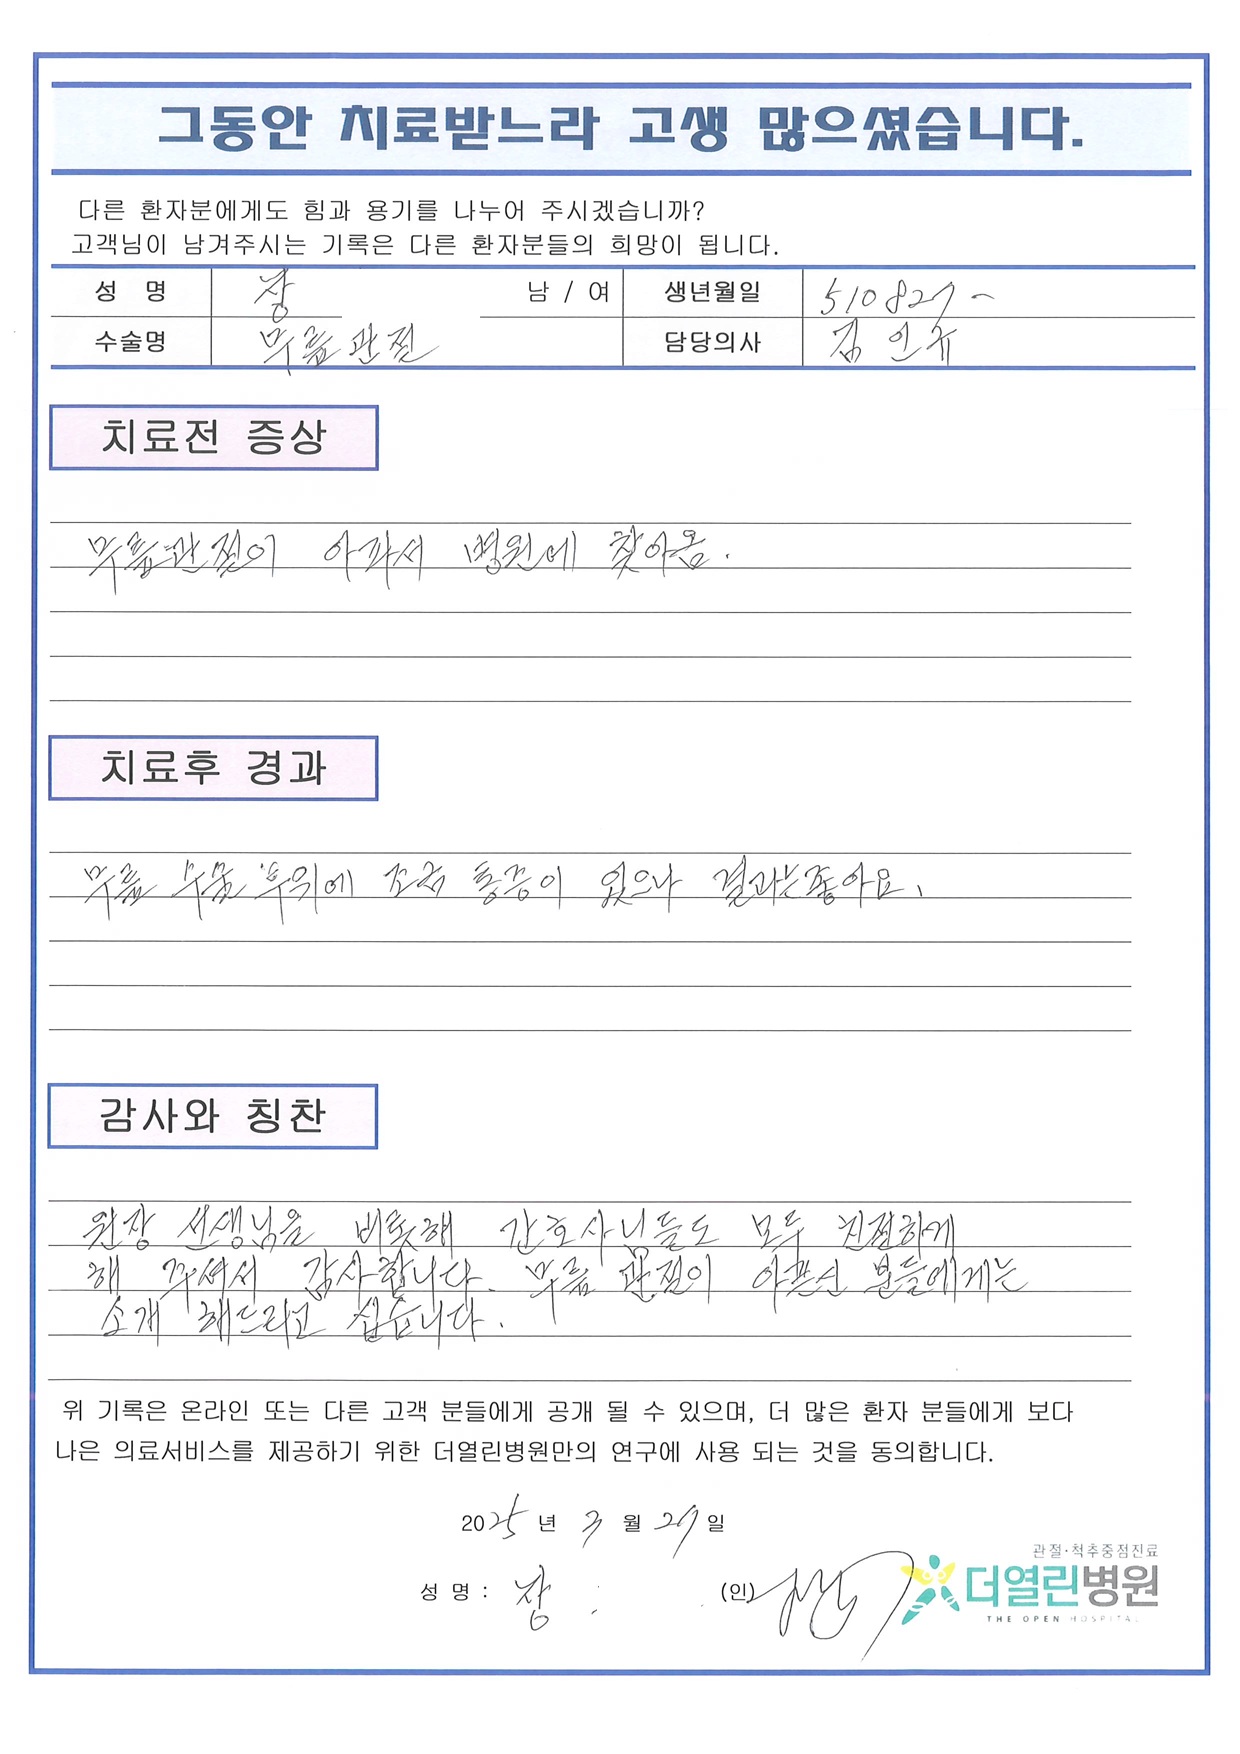 그동안 치료받느라 고생 많으셨습니다.
다른 환자분에게도 힘과 용기를 나누어 주시겠습니까?
고객님이 남겨주시는 기록은 다른 환자분들의 희망이 됩니다.
성 명 장 남 / 여 생년월일 510827-
수술명 무릎관절 담당의사 김 인규
치료전 증상
무릎관절이 아파서 병원에 찾아옴.
치료후 경과
무릎 수술 후위에 조금 통증이 있으나 결과는좋아요.
감사와 칭찬
원장 선생님을 비롯해 간호사님들도 모두 친절하게
해 주셔서 감사합니다. 무릎 관절이 아프신 분들에게는
소개 해드리고 십습니다.
위 기록은 온라인 또는 다른 고객 분들에게 공개 될 수 있으며, 더 많은 환자 분들에게 보다
나은 의료서비스를 제공하기 위한 더열린병원만의 연구에 사용 되는 것을 동의합니다.
2025 년 3 월 27 일
성 명 : 장 (인)
관절·척추중점진료
더열린병원
THE OPEN HOSPITAL